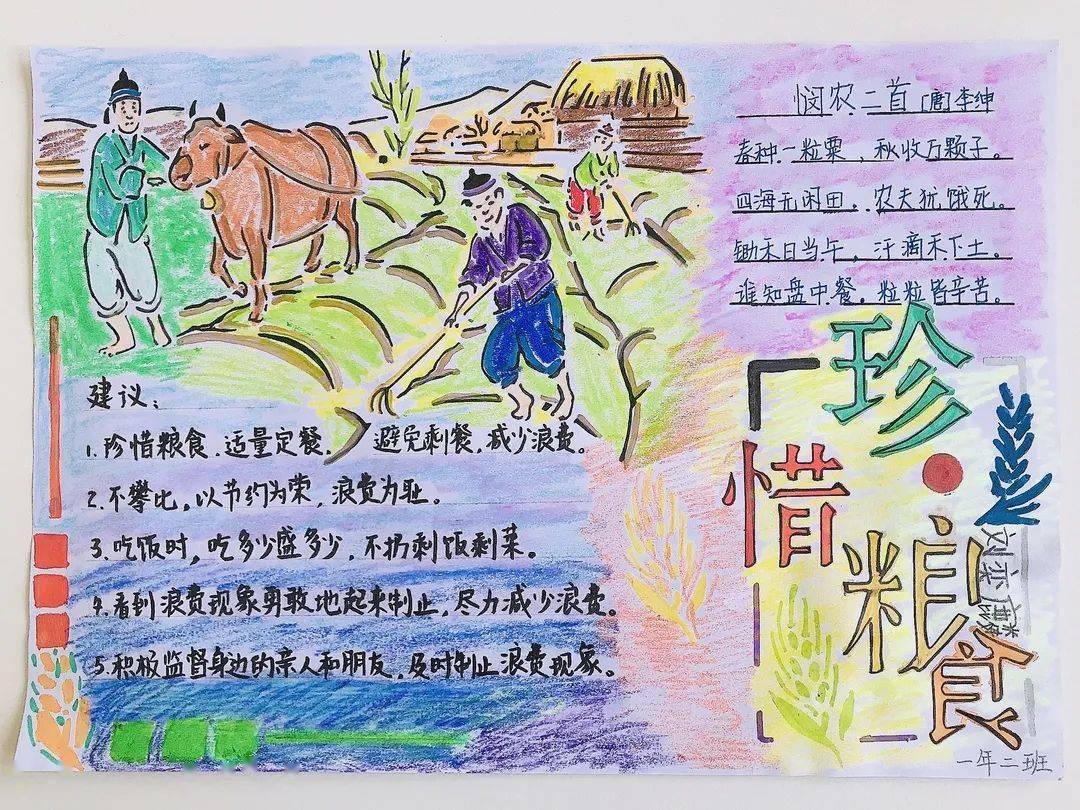 悯农二首 [唐] 李绅
春种一粒粟，秋收万颗子。
四海无闲田，农夫犹饿死。
锄禾日当午，汗滴禾下土。
谁知盘中餐，粒粒皆辛苦。
珍惜粮食
建议：
1.珍惜粮食.适量定餐.避免剩餐,减少浪费。
2.不攀比,以节约为荣,浪费为耻。
3.吃饭时,吃多少盛多少,不扔剩饭剩菜。
4.看到浪费现象勇敢地起来制止,尽力减少浪费。
5.积极监督身边的亲人和朋友,及时制止浪费现象。
一年二班